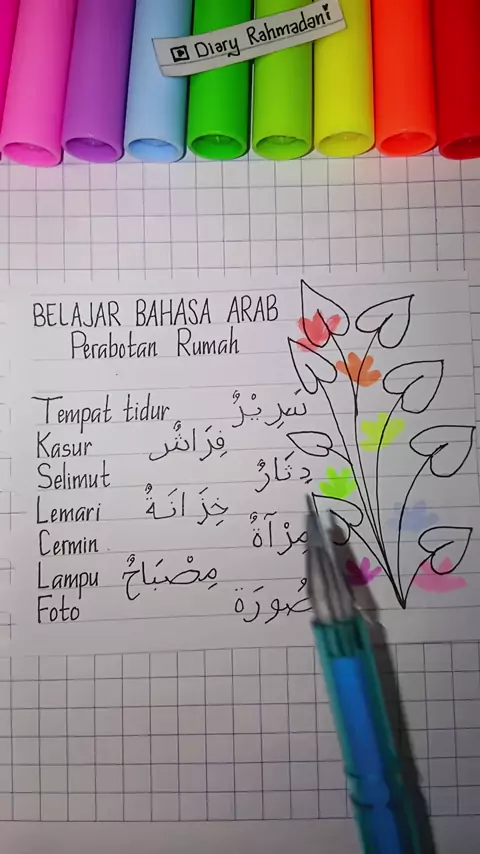 Diary Rahmadani
BELAJAR BAHASA ARAB
Perabotan Rumah
Tempat tidur سَرِيْرٌ
Kasur فِرَاشٌ
Selimut دِثَارٌ
Lemari خِزَانَةٌ
Cermin مِرْآةٌ
Lampu مِصْبَاحٌ
Foto صُورَة